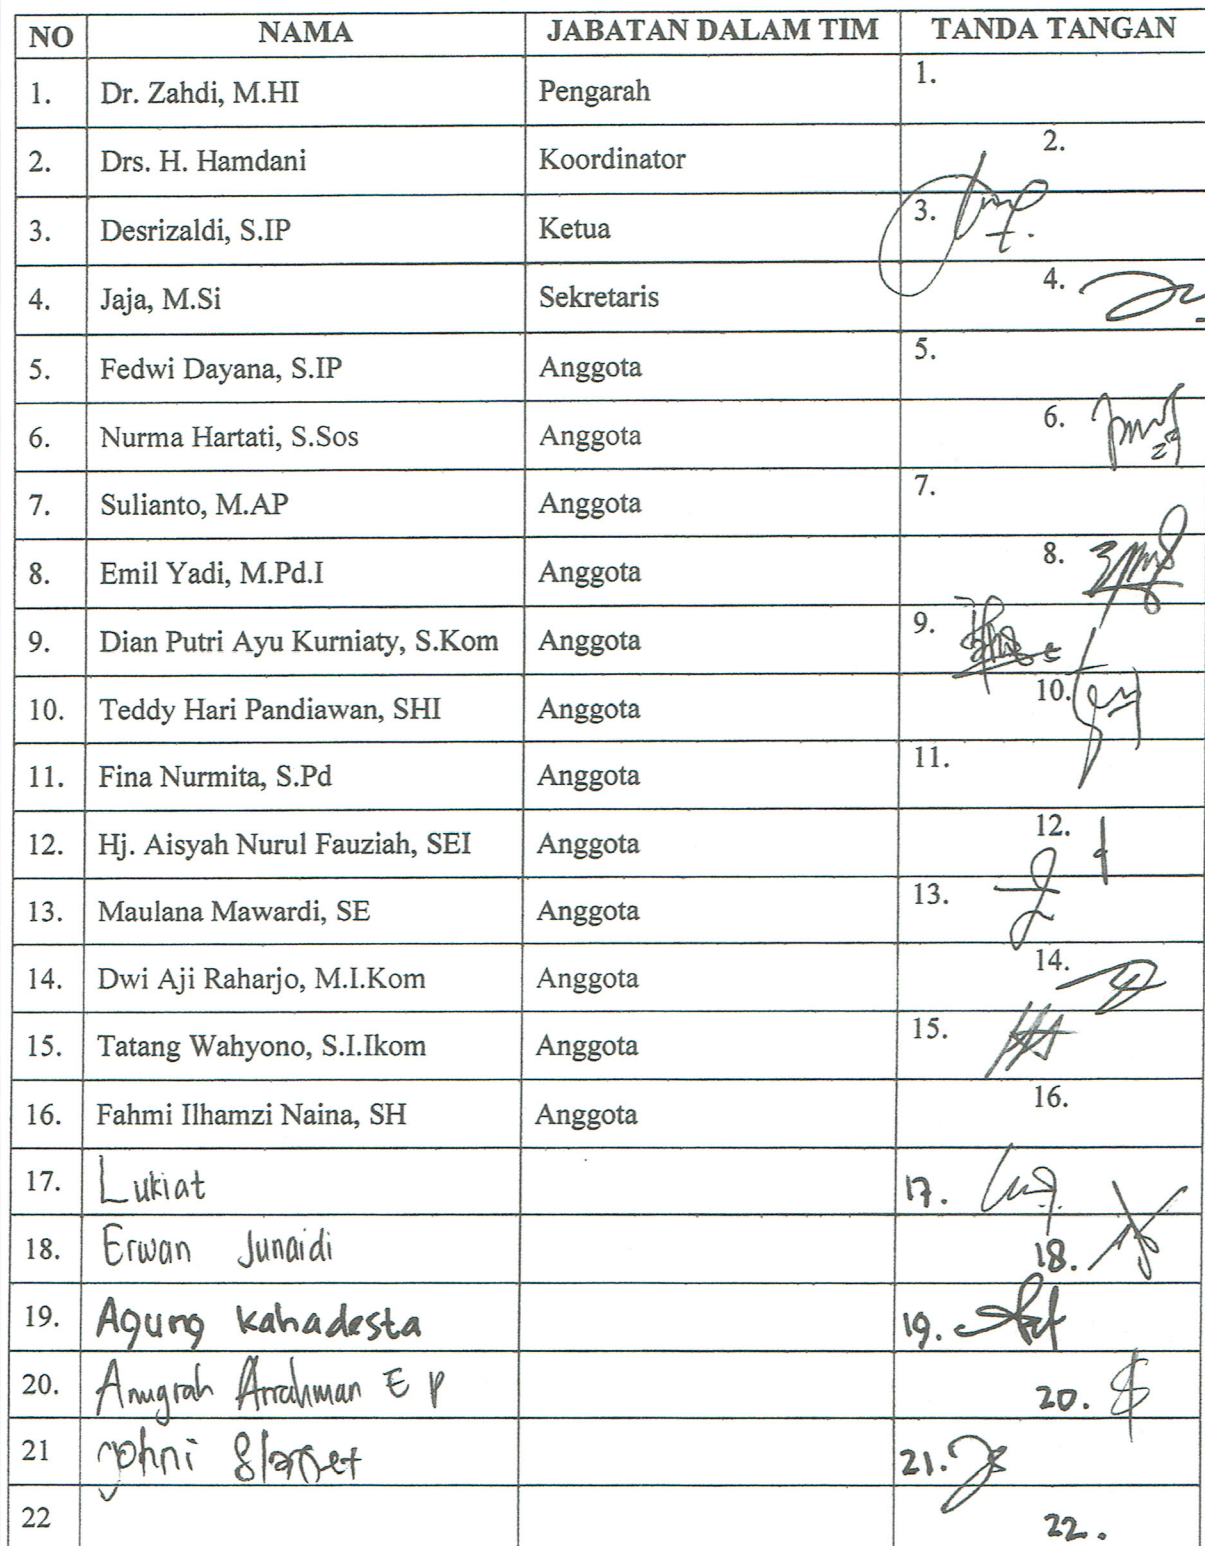 NO NAMA JABATAN DALAM TIM TANDA TANGAN
1. Dr. Zahdi, M.HI Pengarah 1.
2. Drs. H. Hamdani Koordinator 2.
3. Desrizaldi, S.IP Ketua 3.
4. Jaja, M.Si Sekretaris 4.
5. Fedwi Dayana, S.IP Anggota 5.
6. Nurma Hartati, S.Sos Anggota 6.
7. Sulianto, M.AP Anggota 7.
8. Emil Yadi, M.Pd.I Anggota 8.
9. Dian Putri Ayu Kurniaty, S.Kom Anggota 9.
10. Teddy Hari Pandiawan, SHI Anggota 10.
11. Fina Nurmita, S.Pd Anggota 11.
12. Hj. Aisyah Nurul Fauziah, SEI Anggota 12.
13. Maulana Mawardi, SE Anggota 13.
14. Dwi Aji Raharjo, M.I.Kom Anggota 14.
15. Tatang Wahyono, S.I.Ikom Anggota 15.
16. Fahmi Ilhamzi Naina, SH Anggota 16.
17. Lukiat 17.
18. Erwan Junaidi 18.
19. Agung Kahadesta 19.
20. Anugrah Arrahman E P 20.
21 Johni Slamet 21.
22 22.